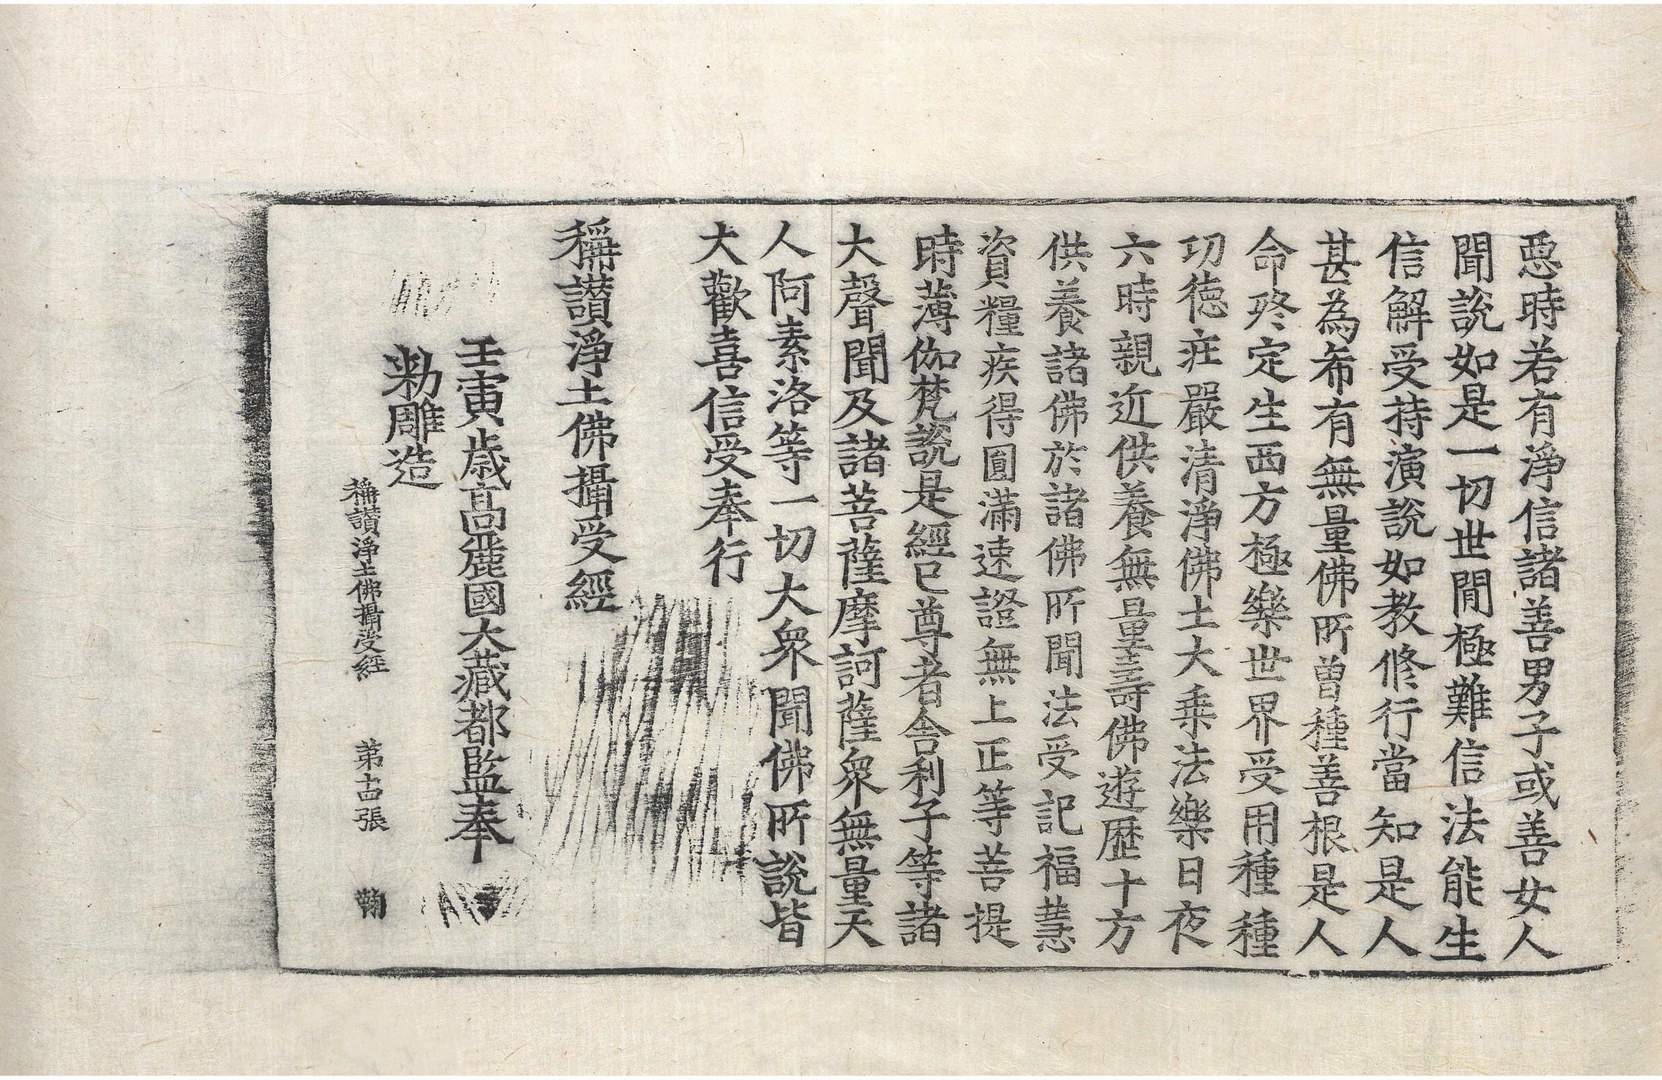 惡時若有淨信諸善男子或善女人
聞說如是一切世閒極難信法能生
信解受持演說如教修行當知是人
甚為希有無量佛所曾種善根是人
命終定生西方極樂世界受用種種
功德莊嚴清淨佛土大乘法樂日夜
六時親近供養無量壽佛遊歷十方
供養諸佛於諸佛所聞法受記福慧
資糧疾得圓滿速證無上正等菩提
時薄伽梵說是經已尊者舍利子等諸
大聲聞及諸菩薩摩訶薩衆無量天
人阿素洛等一切大衆聞佛所說皆
大歡喜信受奉行
稱讚淨土佛攝受經
壬寅歲高麗國大藏都監奉
勑雕造
稱讃淨土佛攝受經 第十四張 鞠